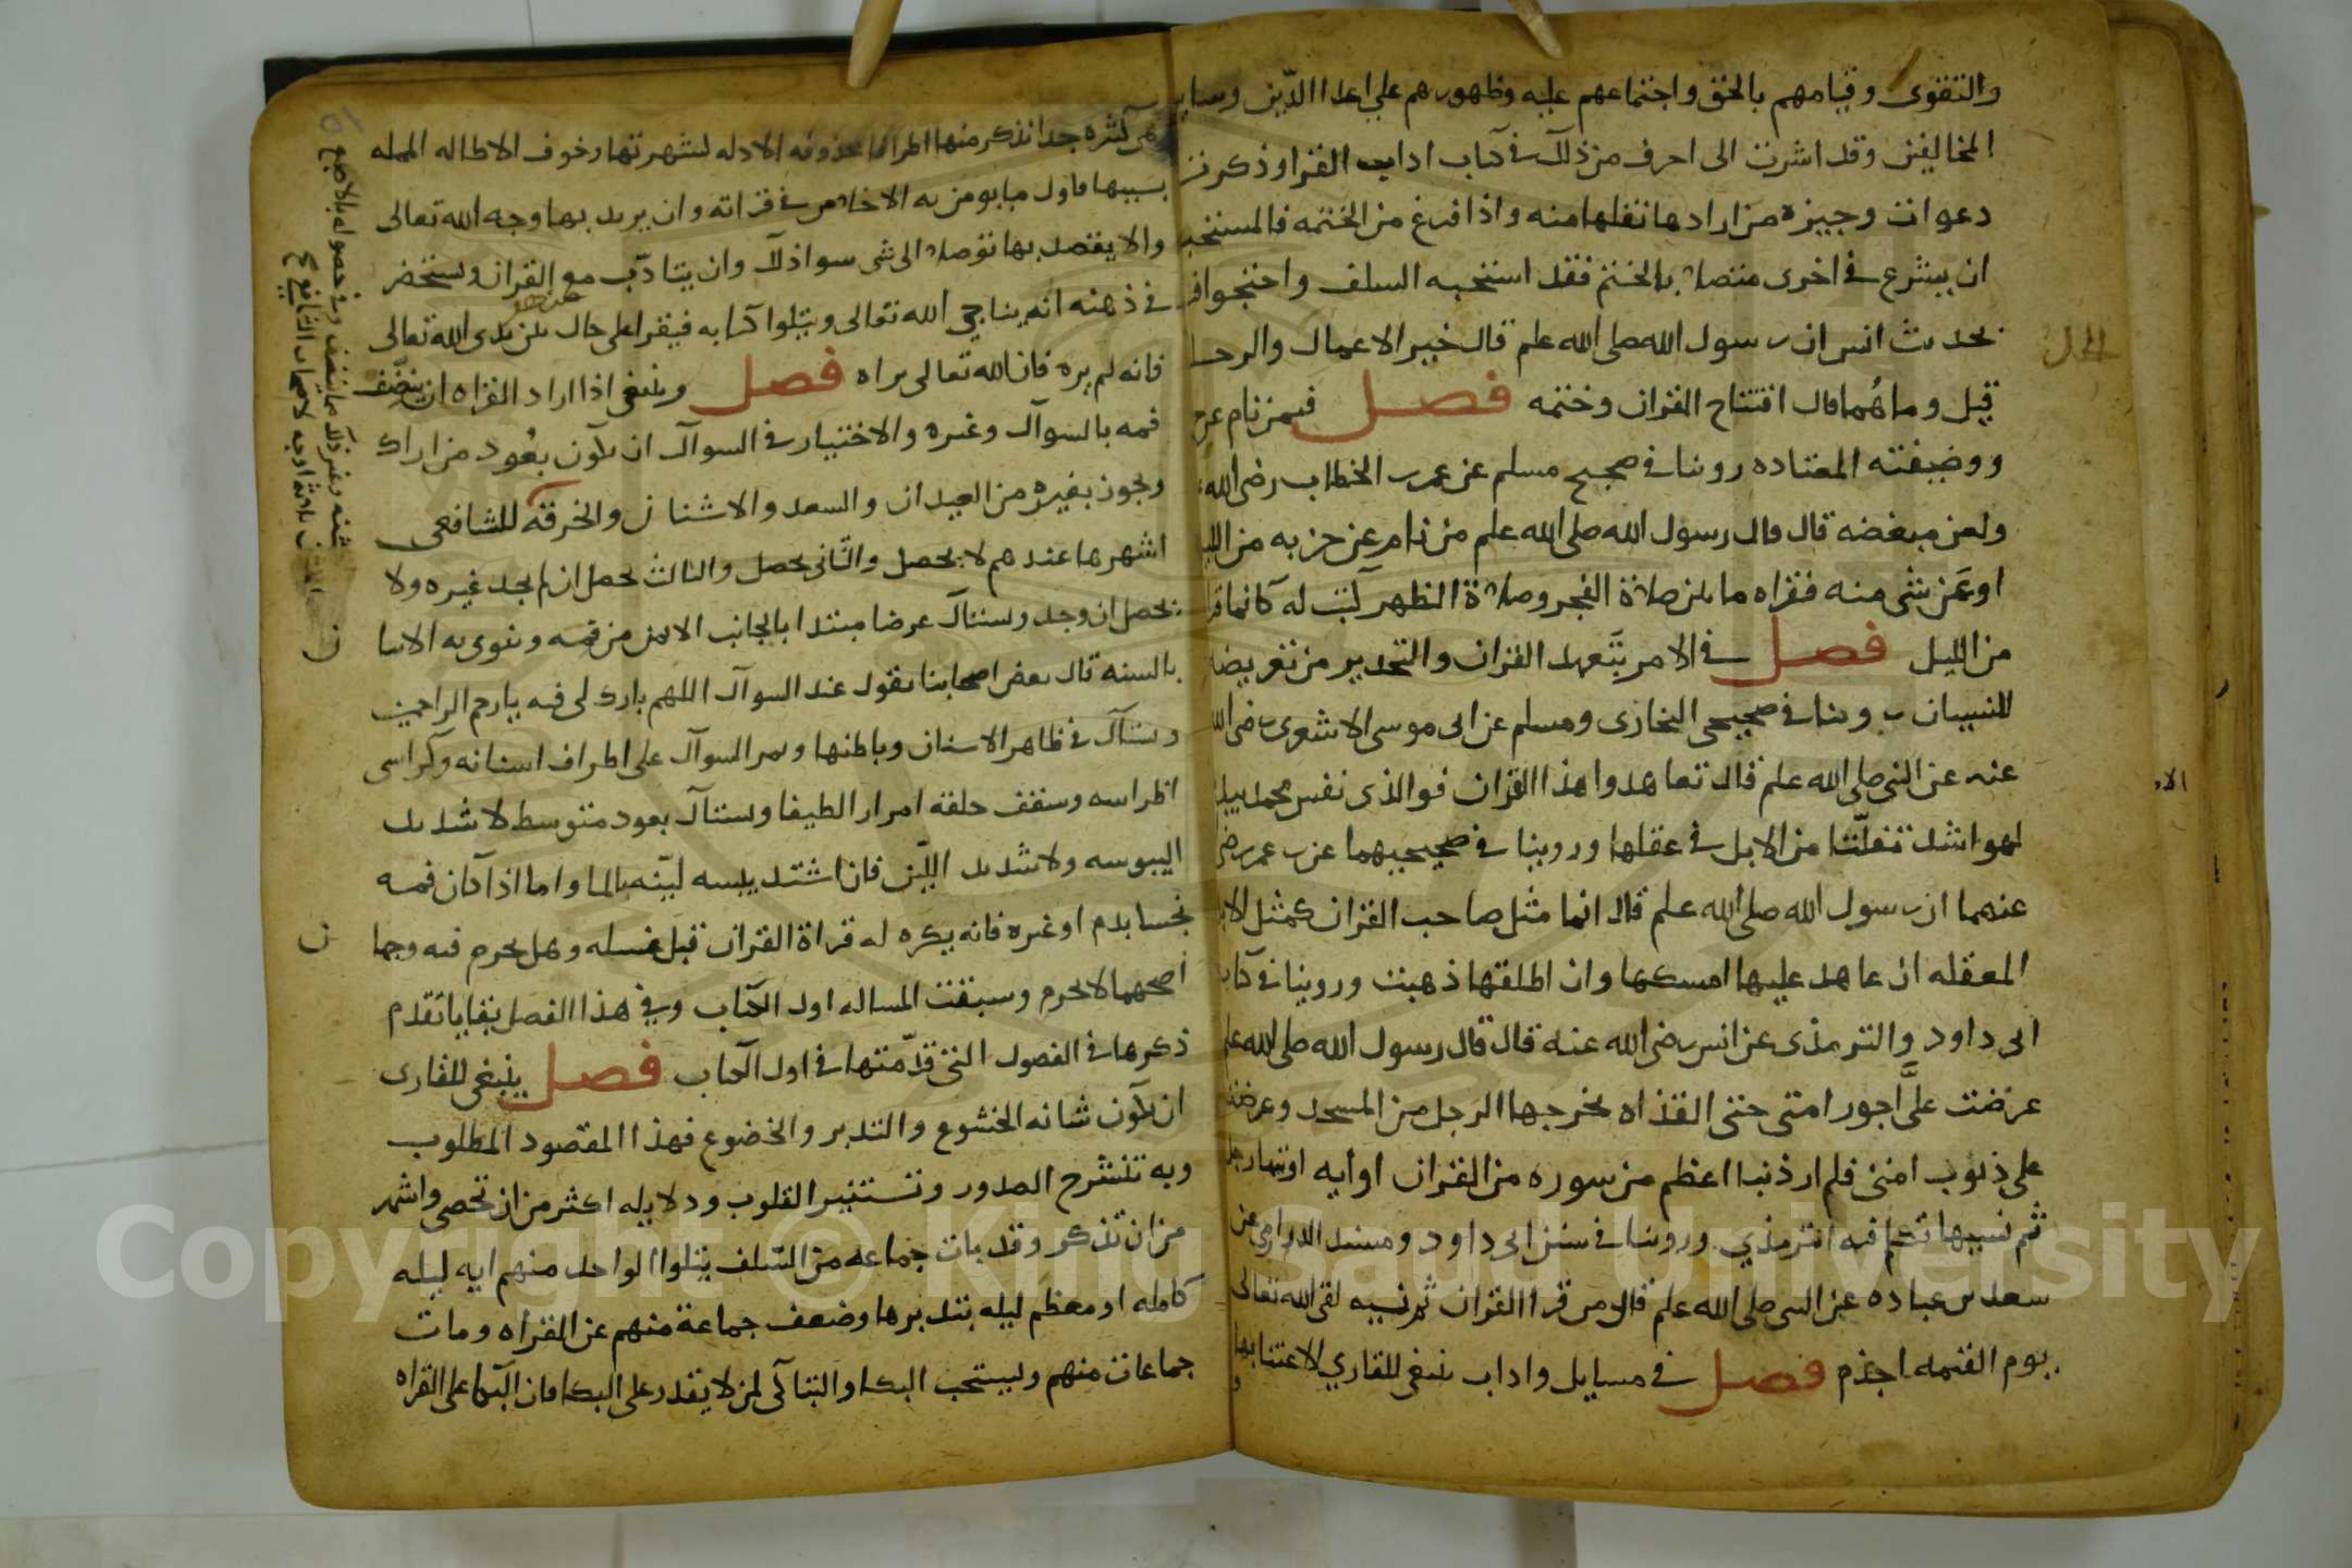 والتقوى وقيامهم بالحق واجتماعهم عليه وظهورهم على اعدا الدّين وساير
المخالفين وقد اشرت الى احرف من ذلك في كتاب اداب القرا وذكرت
دعوات وجيزه من ارادها نقلها منه واذا فرغ من الختمه فالمستحب
ان يشرع في اخرى متصلا بالختم فقد استحبه السلف واحتجوا فيه
بحديث انس ان رسول الله صلى الله علم قال خير الاعمال والرحله
قيل وما هُما قال افتتاح القران وختمه فصل فيمن نام عن
ووضيفته المعتاده روينا في صحيح مسلم عن عمر بن الخطاب رضى الله
قال قال رسول الله صلى الله علم من نام عن حزبه من الليل
او عَن شى منه فقراه ما بين صلاة الفجر وصلاة الظهر كتب له كانما قراه
من الليل فصل في الامر بتَعهد القران والتحدير من تعريضه
للنسيان روينا في صحيحى البخارى ومسلم عن ابى موسى الاشعرى رضى الله
عنه عن النبى صلى الله علم قال تعاهدوا هذا القران فوالذى نفس محمد بيده
لهو اشد تفلّتا من الابل في عقلها وروينا في صحيحيهما عن بن عمر رضى
عنهما ان رسول الله صلى الله علم قال انما مثل صاحب القران كمثل الابل
المعقله ان عاهد عليها امسكها وان اطلقها ذهبت وروينا في كتاب
ابى داود والترمذى عن انس رضى الله عنه قال قال رسول الله صلى الله علم
عرضت علَّى اجور امتى حتى القذاه يخرجها الرجل من المسجد وعرضت
على ذنوب امتى فلم ار ذنبا اعظم من سوره من القران او ايه اوتيها رجل
ثم نسيها تكلم فيه الترمذي وروينا في سنن ابى داود ومسند الدارمى عن
سعد بن عباده عن النبى صلى الله علم قال من قرا القران ثم نسيه لقى الله تعالى
يوم القيمه اجذم فصل في مسايل واداب ينبغى للقاري الاعتنا بها
كثيره جدا نذكر منها اطرافا محذوفه الادله لشهرتها وخوف الاطاله المملة
بسببها فاول ما يومر به الاخلاص في قراته وان يريد بها وجه الله تعالى
والا يقصد بها توصلا الى شى سوا ذلك وان يتادّب مع القران ويستحضر
في ذهنه انه يناجي الله تعالى ويتلوا كتابه فيقرا على حال من بين يدى الله تعالى
فانه لم يره فان الله تعالى يراه فصل وينبغى اذا اراد القراه ان ينضّف
فمه بالسواك وغيره والاختيار في السواك ان يكون بعُود من اراك
ويجوز بغيره من العيدان والسعد والاشنان والخرقة للشافعى
اشهرها عندهم لا يحصل والثّانى يحصل والثالث يحصل ان لم يجد غيره ولا
يحصل ان وجد ويستاك عرضا مبتدا بالجانب الايمن من فمه وينوى به الاتيا
بالسنه قال بعض اصحابنا يقول عند السواك اللهم بارك لى فيه يارحم الراحمين
ويستاك في ظاهر الاسنان وباطنها ويمر السواك على اطراف اسنانه وكراسى
اظراسه وسقف حلقه امرارا لطيفا ويستاك بعود متوسط لا شديد
اليبوسه ولا شديد اللّين فان اشتد يبسه ليّنه بالما واما اذا كان فمه
نجسا بدم او غيره فانه يكره له قراة القران قبل غسله وهل يحرم فيه وجها
ن
اصحهما لا يحرم وسبقت المساله اول الكتاب وفي هذا الفصل بقايا تقدم
ذكرها في الفصول التى قدّمتها في اول الكتاب فصل ينبغى للقارى
ان يكون شانه الخشوع والتدبر والخضوع فهذا المقصود المطلوب
وبه تنشرح الصدور وتستنير القلوب ودلايله اكثر من ان تحصى واشهر
من ان تذكر وقد بات جماعه من السّلف يتلوا الواحد منهم ايه ليله
كامله او معظم ليله يتدبرها وضعف جماعة منهم عن القراه ومات
جماعات منهم ويستحب البكا والتباكى لمن لا يقدر على البكا فان البكا على القراه
Copyright © King Saud University